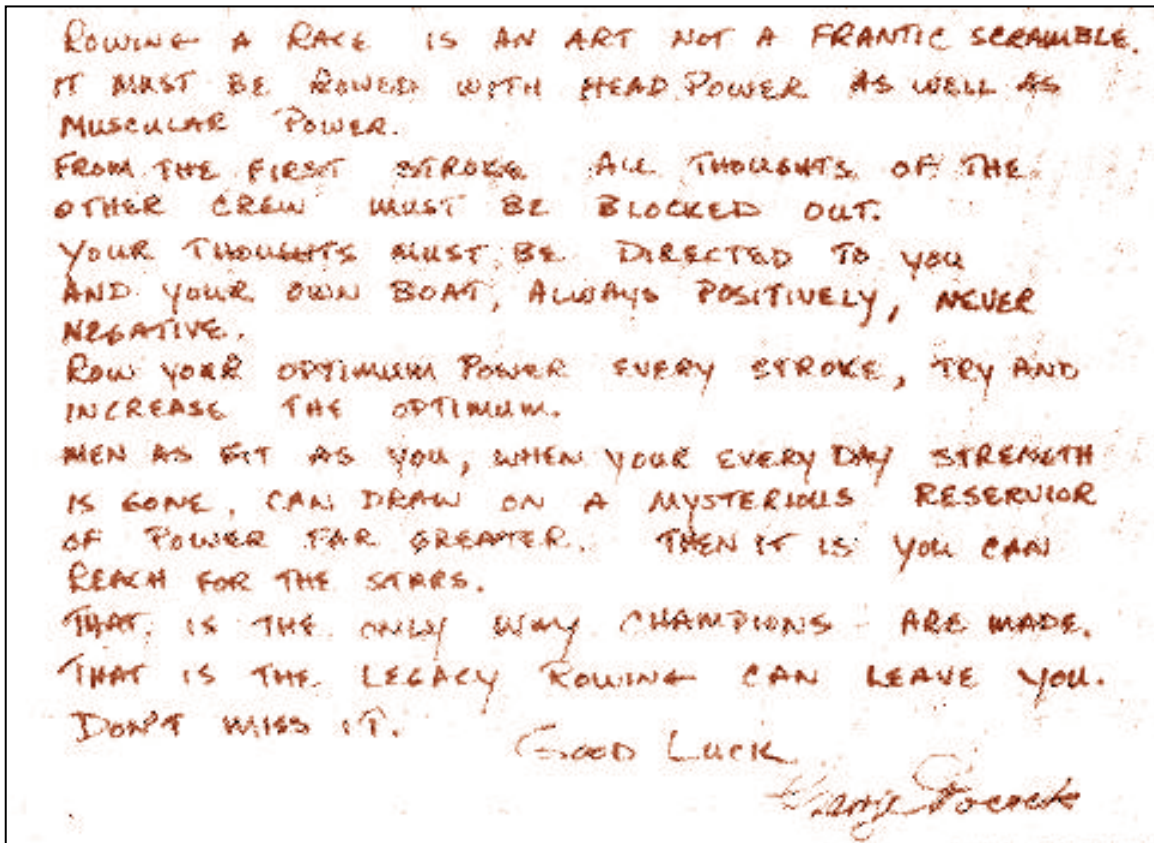 ROWING A RACE IS AN ART NOT A FRANTIC SCRAMBLE.
IT MUST BE ROWED WITH HEAD POWER AS WELL AS
MUSCULAR POWER.
FROM THE FIRST STROKE ALL THOUGHTS OF THE
OTHER CREW MUST BE BLOCKED OUT.
YOUR THOUGHTS MUST BE DIRECTED TO YOU
AND YOUR OWN BOAT, ALWAYS POSITIVELY, NEVER
NEGATIVE.
ROW YOUR OPTIMUM POWER EVERY STROKE, TRY AND
INCREASE THE OPTIMUM.
MEN AS FIT AS YOU, WHEN YOUR EVERY DAY STRENGTH
IS GONE, CAN DRAW ON A MYSTERIOUS RESERVIOR
OF POWER FAR GREATER. THEN IT IS YOU CAN
REACH FOR THE STARS.
THAT IS THE ONLY WAY CHAMPIONS ARE MADE.
THAT IS THE LEGACY ROWING CAN LEAVE YOU.
DON'T MISS IT.
GOOD LUCK
George Pocock